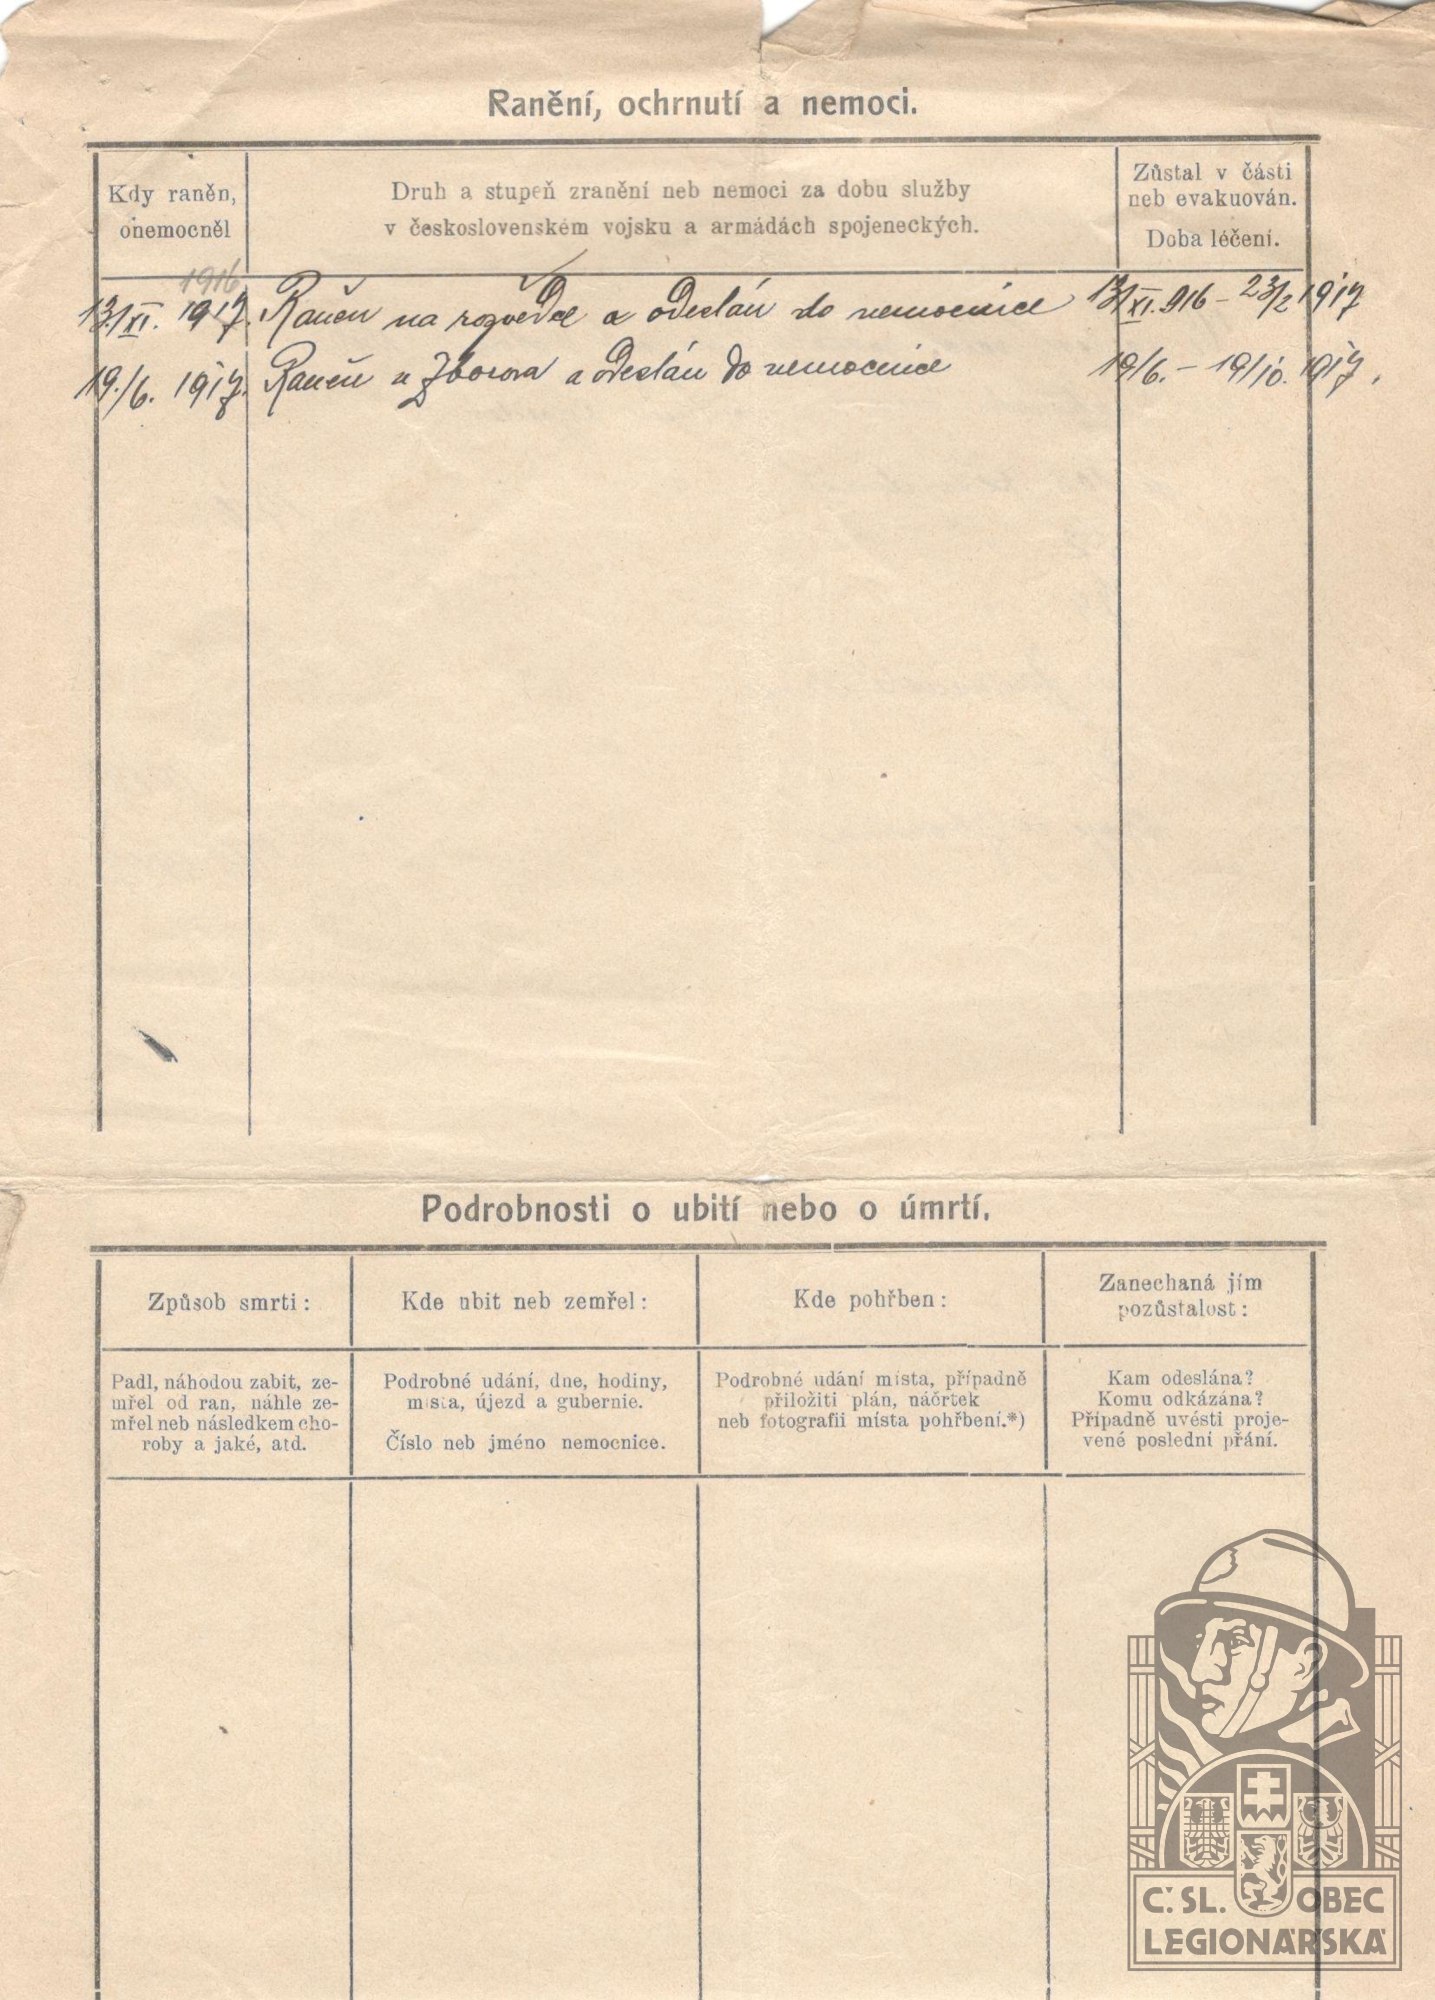 Ranění, ochrnutí a nemoci.
Kdy raněn,
onemocněl
Druh a stupeň zranění neb nemoci za dobu služby
v československém vojsku a armádách spojeneckých.
Zůstal v části
neb evakuován.
Doba léčení.
1916
13/XI. 1917. Raněn na rozvědce a odeslán do nemocnice 13/XI. 916 – 23/2 1917
19./6. 1917. Raněn u Zborova a odeslán do nemocnice 19/6. – 19/10. 1917.
Podrobnosti o ubití nebo o úmrtí.
Způsob smrti:
Kde ubit neb zemřel:
Kde pohřben:
Zanechaná jím
pozůstalost:
Padl, náhodou zabit, ze-
mřel od ran, náhle ze-
mřel neb následkem cho-
roby a jaké, atd.
Podrobné udání, dne, hodiny,
místa, újezd a gubernie.
Číslo neb jméno nemocnice.
Podrobné udání místa, případně
přiložiti plán, náčrtek
neb fotografii místa pohřbení.*)
Kam odeslána?
Komu odkázána?
Případně uvésti proje-
vené poslední přání.
Č. SL. OBEC
LEGIONÁŘSKÁ